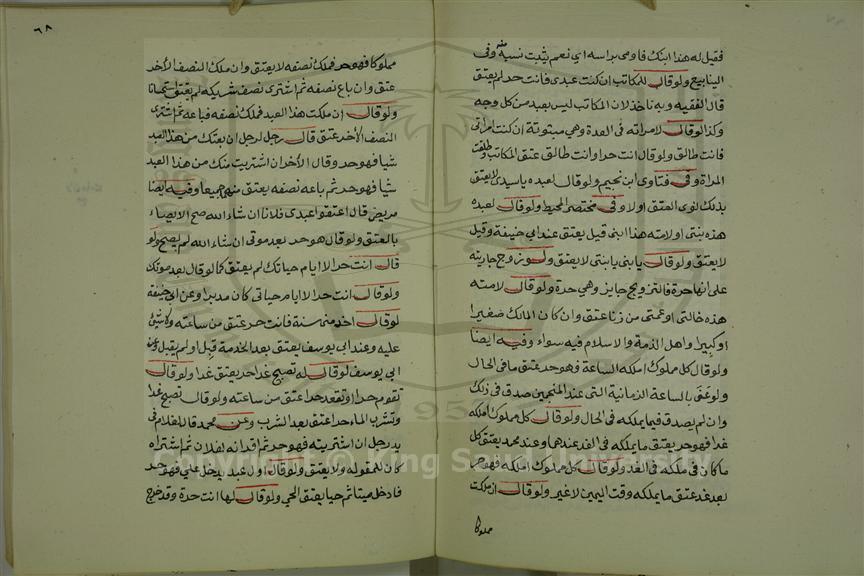 فقيل له هذا ابنك فاومى براسه اي نعم يثبت نسبه منه وفى
الينابيع ولو قال للمكاتب ان كنت عبدى فانت حر لم يعتق
قال الفقيه وبه ناخذ لان المكاتب ليس بعبد من كل وجه
وكذا لو قال لامراته فى العدة وهى مبتوتة ان كنت امراتى
فانت طالق ولو قال انت حر او انت طالق عتق المكاتب وطلقت
المراة وفى فتاوى ابن نجيم ولو قال لعبده يا سيدى لا يعتق
بذلك نوى العتق اولا وفى مختصر المحيط ولو قال لعبده
هذه بنتى او لامته هذا ابنى قيل يعتق عند ابى حنيفة وقيل
لا يعتق ولو قال يا بنى يا بنتى لا يعتق ولو زوج جاريته
على انها حرة فالتزويج جايز وهى حرة ولو قال لامته
هذه خالتى او عمتى من زنا عتق وان كان المالك صغيرا
او كبيرا واهل الذمة والاسلام فيه سواء وفيه ايضا
ولو قال كل مملوك املكه الساعة فهو حر عتق ما فى الحال
ولو عنى بالساعة الزمانية التى عند المنجمين صدق فى ذلك
وان لم يصدق فيما يملكه فى الحال ولو قال كل مملوك املكه
غدا فهو حر يعتق ما يملكه فى الغد عندهما وعند محمد يعتق كل
ما كان فى ملكه فى الغد ولو قال كل مملوك املكه فهو حر
بعد غد عتق ما يملكه وقت اليمين لا غير ولو قال ان ملكت
مملوكا
٦٨
مملوكا فهو حر فملك نصفه لا يعتق وان ملك النصف الأخر
عتق وان باع نصفه ثم اشترى نصف شريكه لم يعتق استحسانا
ولو قال ان ملكت هذا العبد فملك نصفه فباعه ثم اشترى
النصف الأخر عتق قال رجل لرجل ان بعتك من هذا العبد
شيا فهو حر وقال الأخر ان اشتريت منك من هذا العبد
شيا فهو حر ثم باعه نصفه يعتق منهم جميعا وفيه ايضا
مريض قال اعتقوا عبدى فلانا ان شاء الله صح الايصاء
بالعتق ولو قال هو حر بعد موتى ان شاء الله لم يصح ولو
قال انت حر الا ايام حياتك لم يعتق كما لو قال بعد موتك
ولو قال انت حر الا ايام حياتى كان مدبرا وعن ابى حنيفة
لو قال اخدمنى سنة فانت حر عتق من ساعته ولا شئ
عليه وعند ابى يوسف يعتق بعد الخدمة قبل او لم يقبل وعن
ابى يوسف لو قال له تصبح غدا حر يعتق غدا ولو قال
تقوم حرا وتقعد حرا عتق من ساعته ولو قال تصبح غدا
وتشرب الماء حرا عتق بعد الشرب وعن محمد قال لغلام فى
يد رجل ان اشتريته فهو حر ثم اقر انه لفلان ثم اشتراه
كان للمقر له ولا يعتق ولو قال اول عبد يدخل علي فهو حر
فادخل ميتا ثم حيا يعتق الحي ولو قال لها انت حرة وقد خرج
Copyright © King Saud University
195